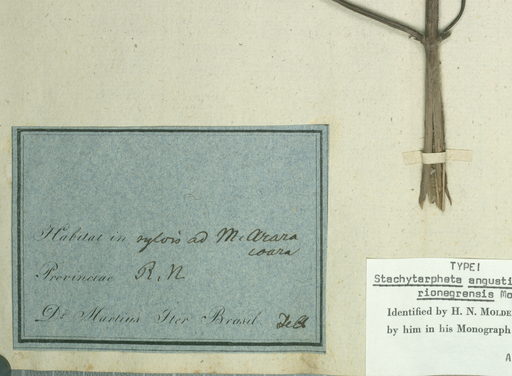 Habitat in sylvis ad M. Arara
coara
Provinciae R. N
Dr Martius Iter Brasil.
TYPE!
Stachytarpheta angusti
rionegrensis Mo
Identified by H. N. MOLDE
by him in his Monograph
A